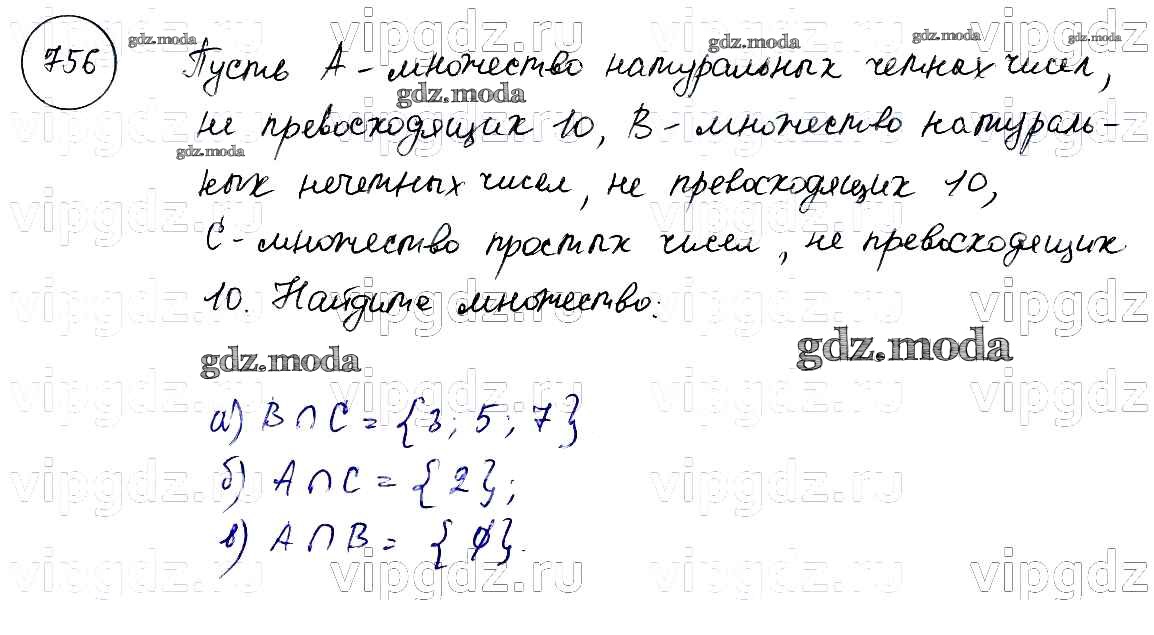 756 Пусть А - множество натуральных четных чисел,
не превосходящих 10, В - множество натураль-
ных нечетных чисел, не превосходящих 10,
С - множество простых чисел, не превосходящих
10. Найдите множество:
а) В ∩ С = {3; 5; 7}
б) А ∩ С = {2};
в) А ∩ В = {∅}.
gdz.moda
gdz.moda
gdz.moda
gdz.moda
gdz.moda
gdz.moda
gdz.moda
gdz.moda
vipgdz.ru